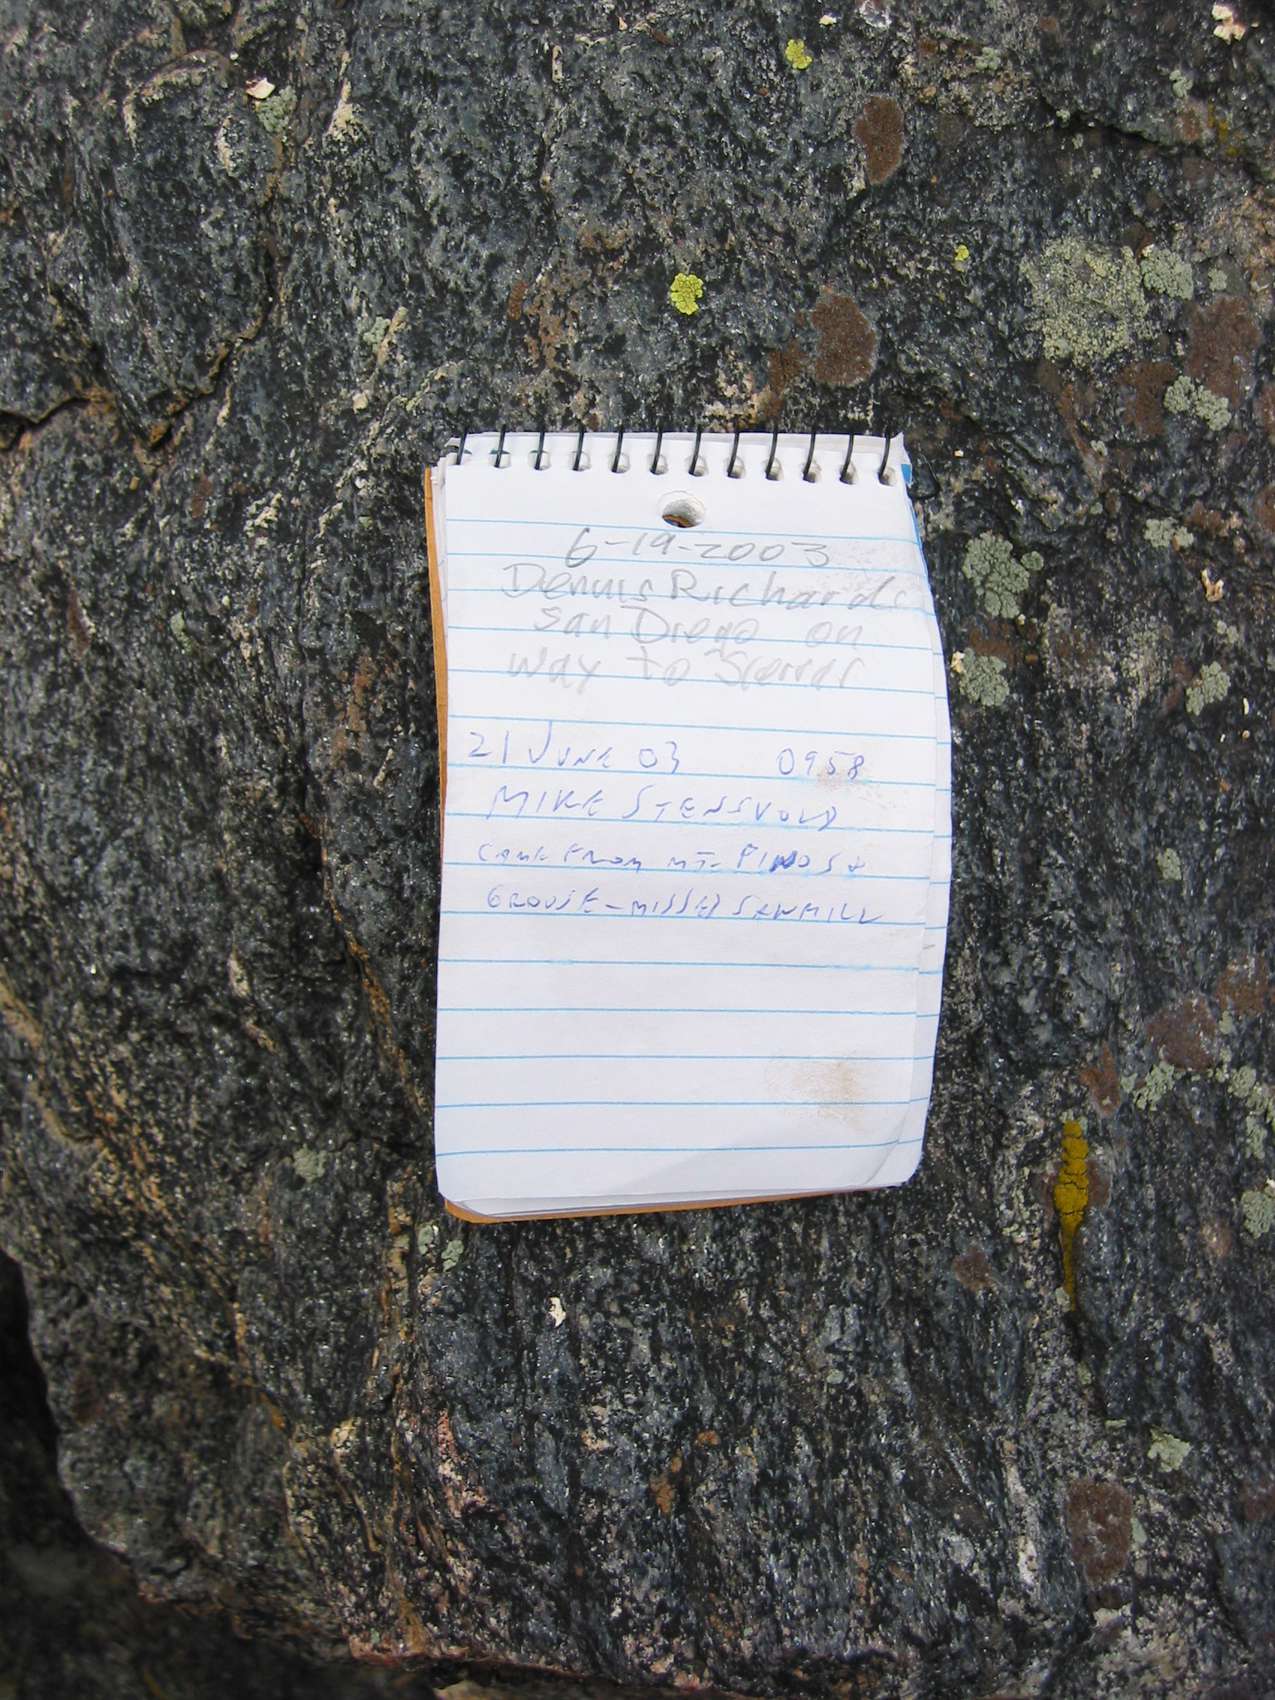 6-19-2003
Dennis Richards
San Diego on
way to Sierras
21 JUNE 03 0958
MIKE STENSVOLD
CAME FROM MT. PINOS &
GROUSE - MISSED SAWMILL